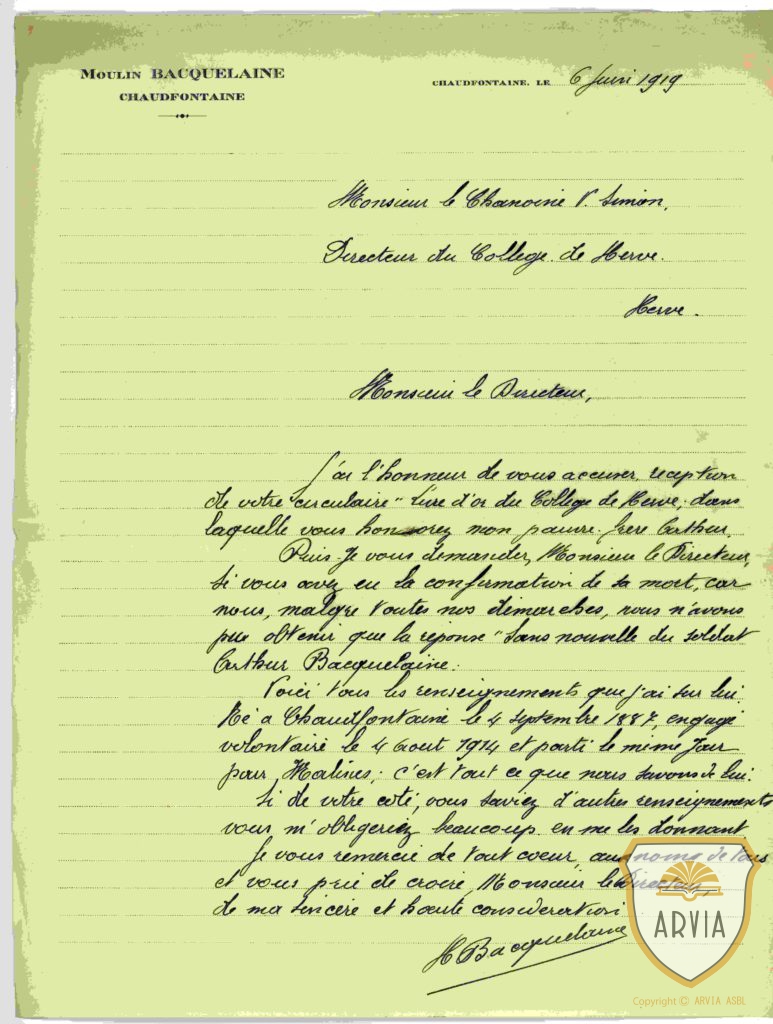 MOULIN BACQUELAINE
CHAUDFONTAINE
CHAUDFONTAINE, LE 6 Juin 1919
Monsieur le Chanoine V. Simon,
Directeur du College de Herve.
Herve.
Monsieur le Directeur,
J'ai l'honneur de vous accuser reception
de votre "circulaire" Livre d'or du College de Herve, dans
laquelle vous honorez mon pauvre frère Arthur.
Puis-je vous demander, Monsieur le Directeur,
si vous avez eu la confirmation de sa mort, car
nous, malgre toutes nos démarches, nous n'avons
pue obtenir que la réponse "Sans nouvelle du soldat
Arthur Bacquelaine.
Voici tous les renseignements que j'ai sur lui.
Né à Chaudfontaine le 4 septembre 1887, engagé
volontaire le 4 aout 1914 et parti le même jour
pour Malines; c'est tout ce que nous savons de lui.
Si de votre coté, vous saviez d'autres renseignements
vous m'obligeriez beaucoup en me les donnant.
Je vous remercie de tout coeur, aux noms de tous
et vous prie de croire, Monsieur le Directeur,
de ma sincère et haute consideration
H Bacquelaine
ARVIA
Copyright © ARVIA ASBL